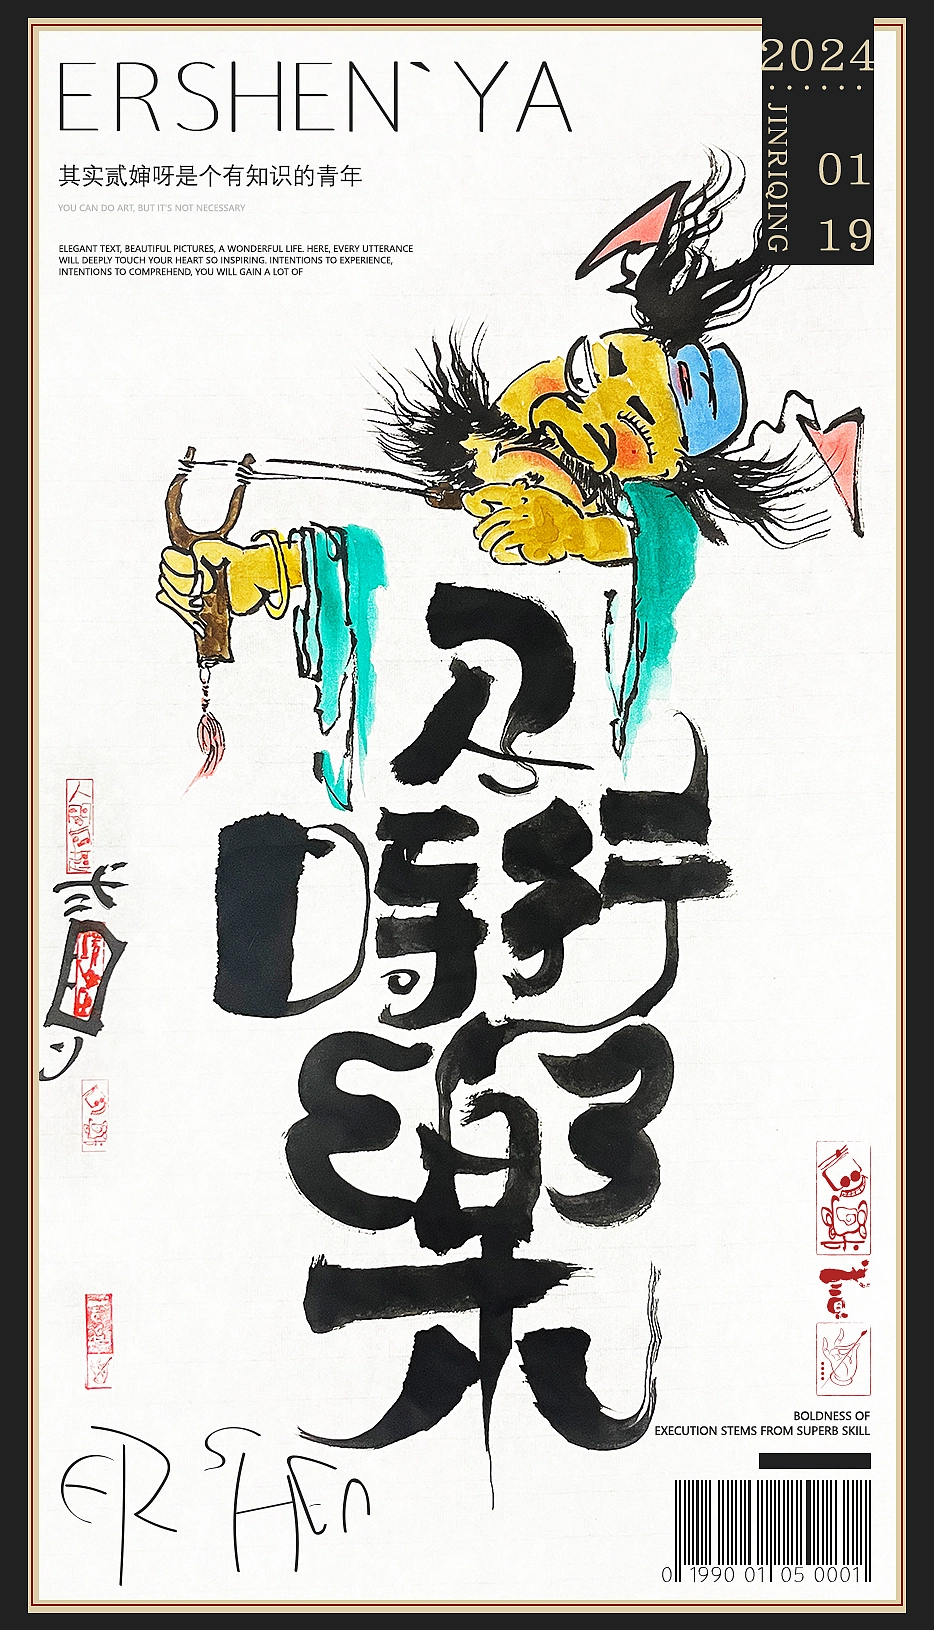 ERSHEN`YA
其实贰婶呀是个有知识的青年
YOU CAN DO ART, BUT IT'S NOT NECESSARY
ELEGANT TEXT, BEAUTIFUL PICTURES, A WONDERFUL LIFE. HERE, EVERY UTTERANCE
WILL DEEPLY TOUCH YOUR HEART SO INSPIRING. INTENTIONS TO EXPERIENCE,
INTENTIONS TO COMPREHEND, YOU WILL GAIN A LOT OF
2024
JINRIQING
01
19
及
時行
樂
ERSHEN
BOLDNESS OF
EXECUTION STEMS FROM SUPERB SKILL
0 1990 01 05 0001